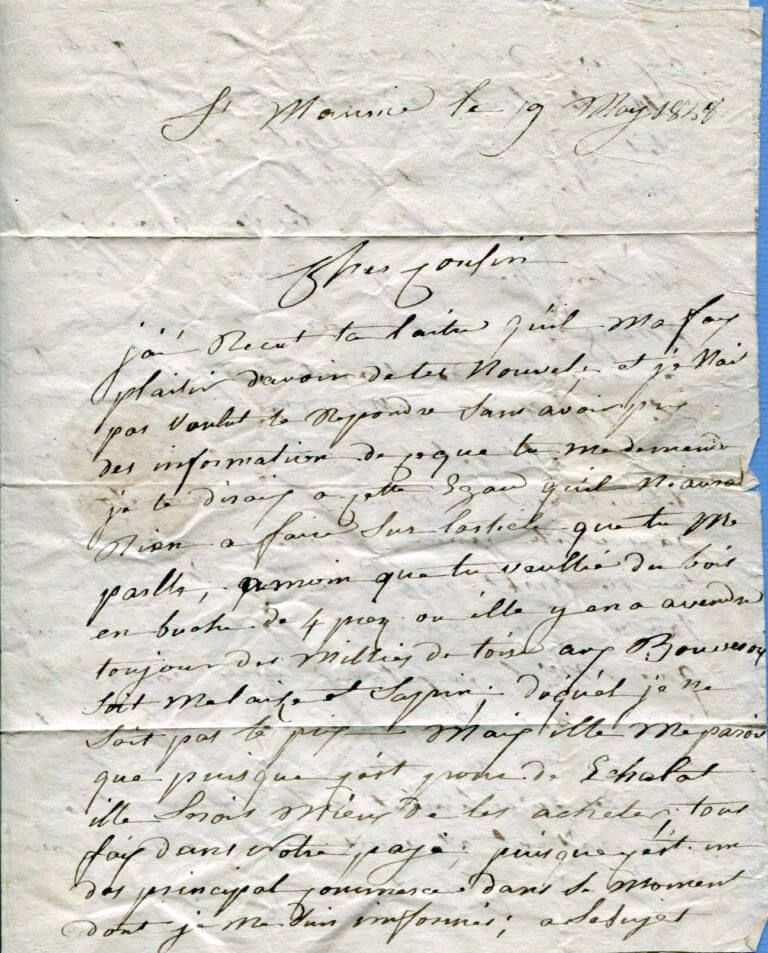 St Maurice le 9 May 1848
Cher Cousin
j'ai Recut ta laitre quil ma fay
plaisir davoir de tes Nouvele, et je Nai
pas Voulut te Repondre Sans avoir pri
des information de ceque tu me demand
je te diraiy a cette Egau quil Niaura
Rien a faire Sur larticle que tu Me
parlle, amoin que tu veullie du bois
en buche de 4 piez ou ille y en a avendre
toujour des Millies de toise aux
Soit Melaize et Sapin, duquel je ne
Sait pas le prix Maiy ille Me parois
que puisque cest pour de Echalat
ille Serois Mieux de les achete, tous
fay dans votre paye, puisque cest un
des principal commerce dans Se Moment
dont je Me Suis imformes; a Sesujet